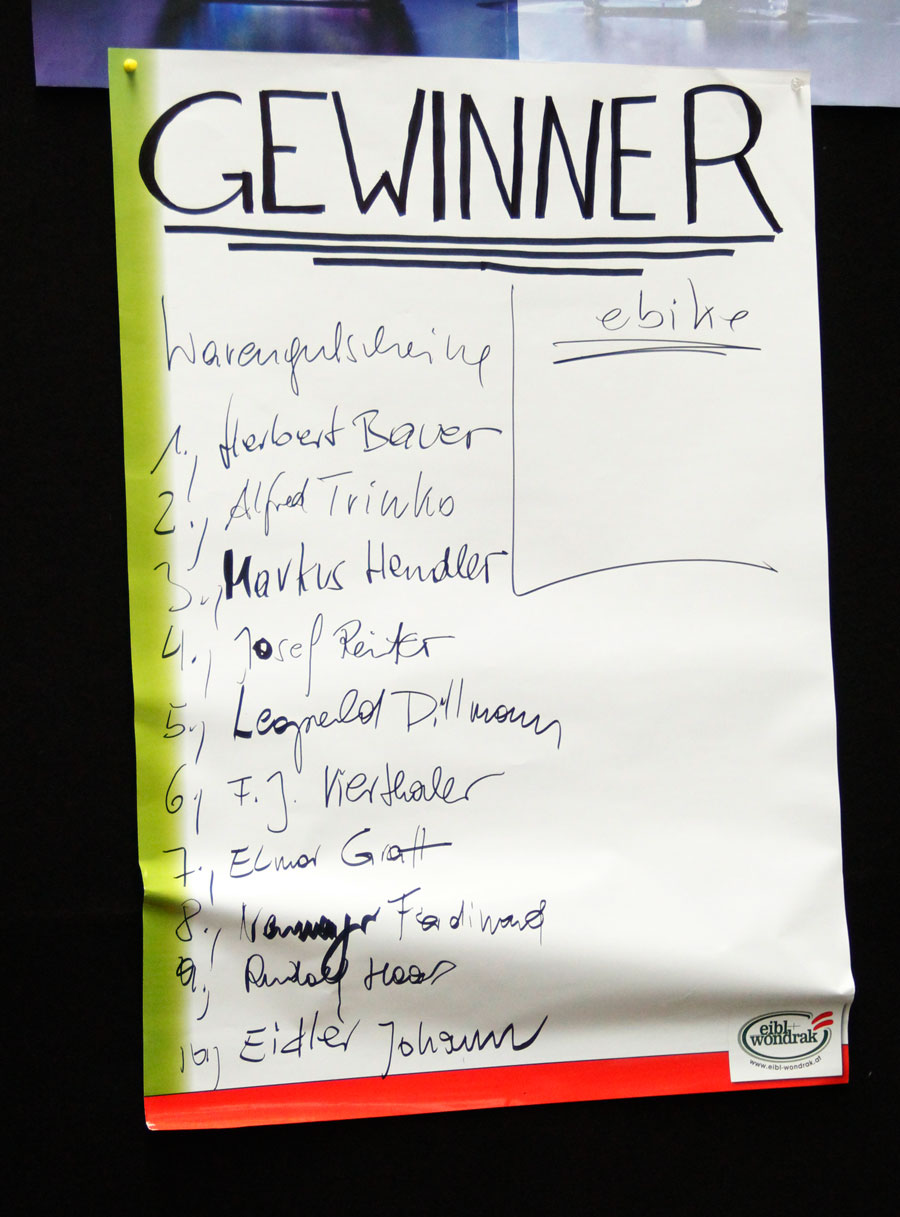 GEWINNER
Warengutscheine
1., Herbert Bauer
2., Alfred Trinko
3., Markus Hendler
4., Josef Reiter
5., Leopold Dillmann
6., F. J. Vierthaler
7., Elmar Gratt
8., Ferdinand
9., Rudolf Haas
10., Eidler Johann
ebike
eibl+
wondrak
www.eibl-wondrak.at